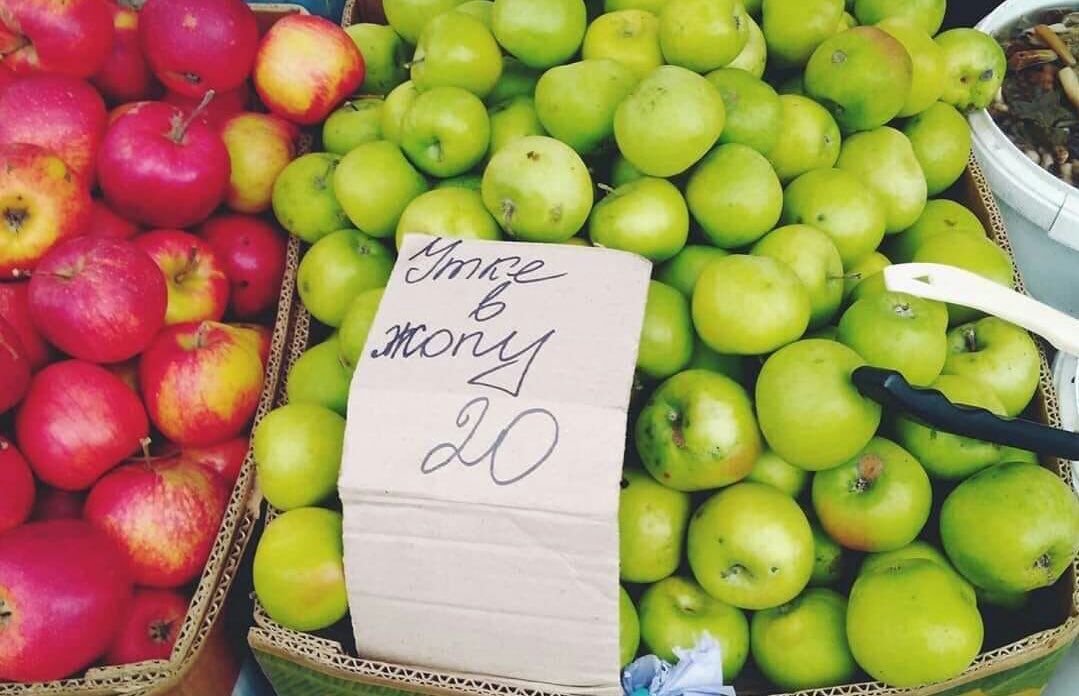 Утке
в
жопу
20